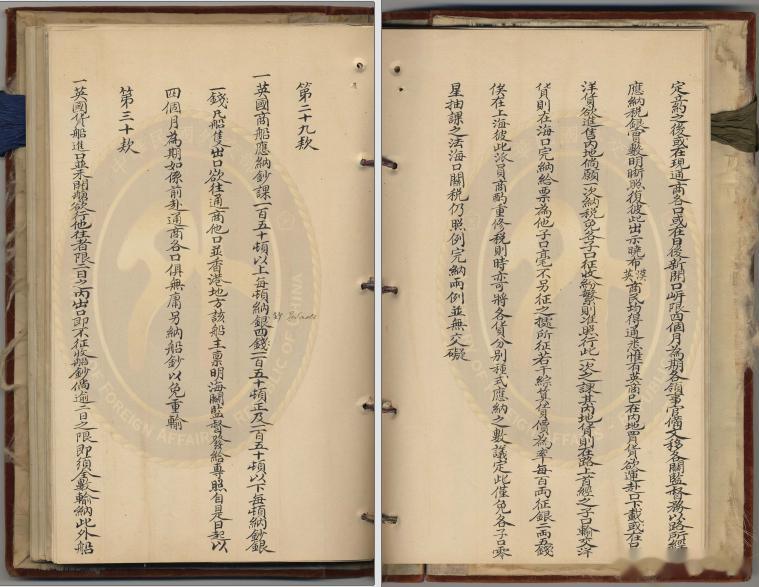 定約之後或在現通商各口或在日後新開口岸限四個月為期各領事官備文移各關監督務以路所經
應納稅銀實數明晰照復彼此出示曉布漢英商民均得通悉惟有英商已在內地買貨欲運赴口下載或在口
洋貨欲進售內地倘願一次納稅免各子口征收紛繁則准照行此一次之課其內地貨則在路上首經之子口輸交洋
貨則在海口完納給票為他子口毫不另征之據所征若干綜算貨價為率每百兩征銀二兩五錢
俟在上海彼此派員商酌重修稅則時亦可將各貨分別種式應納之數議定此僅免各子口零
星抽課之法海口關稅仍照例完納兩例並無交礙
第二十九款
一英國商船應納鈔課一百五十頓以上每頓納銀四錢一百五十頓正及一百五十頓以下每頓納鈔銀
一錢凡船隻出口欲往通商他口並香港地方該船主稟明海關監督發給專照自是日起以
四個月為期如係前赴通商各口俱無庸另納船鈔以免重輸
第三十款
一英國貨船進口並未開艙欲行他往者限二日之內出口即不征收船鈔倘逾二日之限即須全數輸納此外船
OF FOREIGN AFFAIRS, REPUBLIC OF CHINA